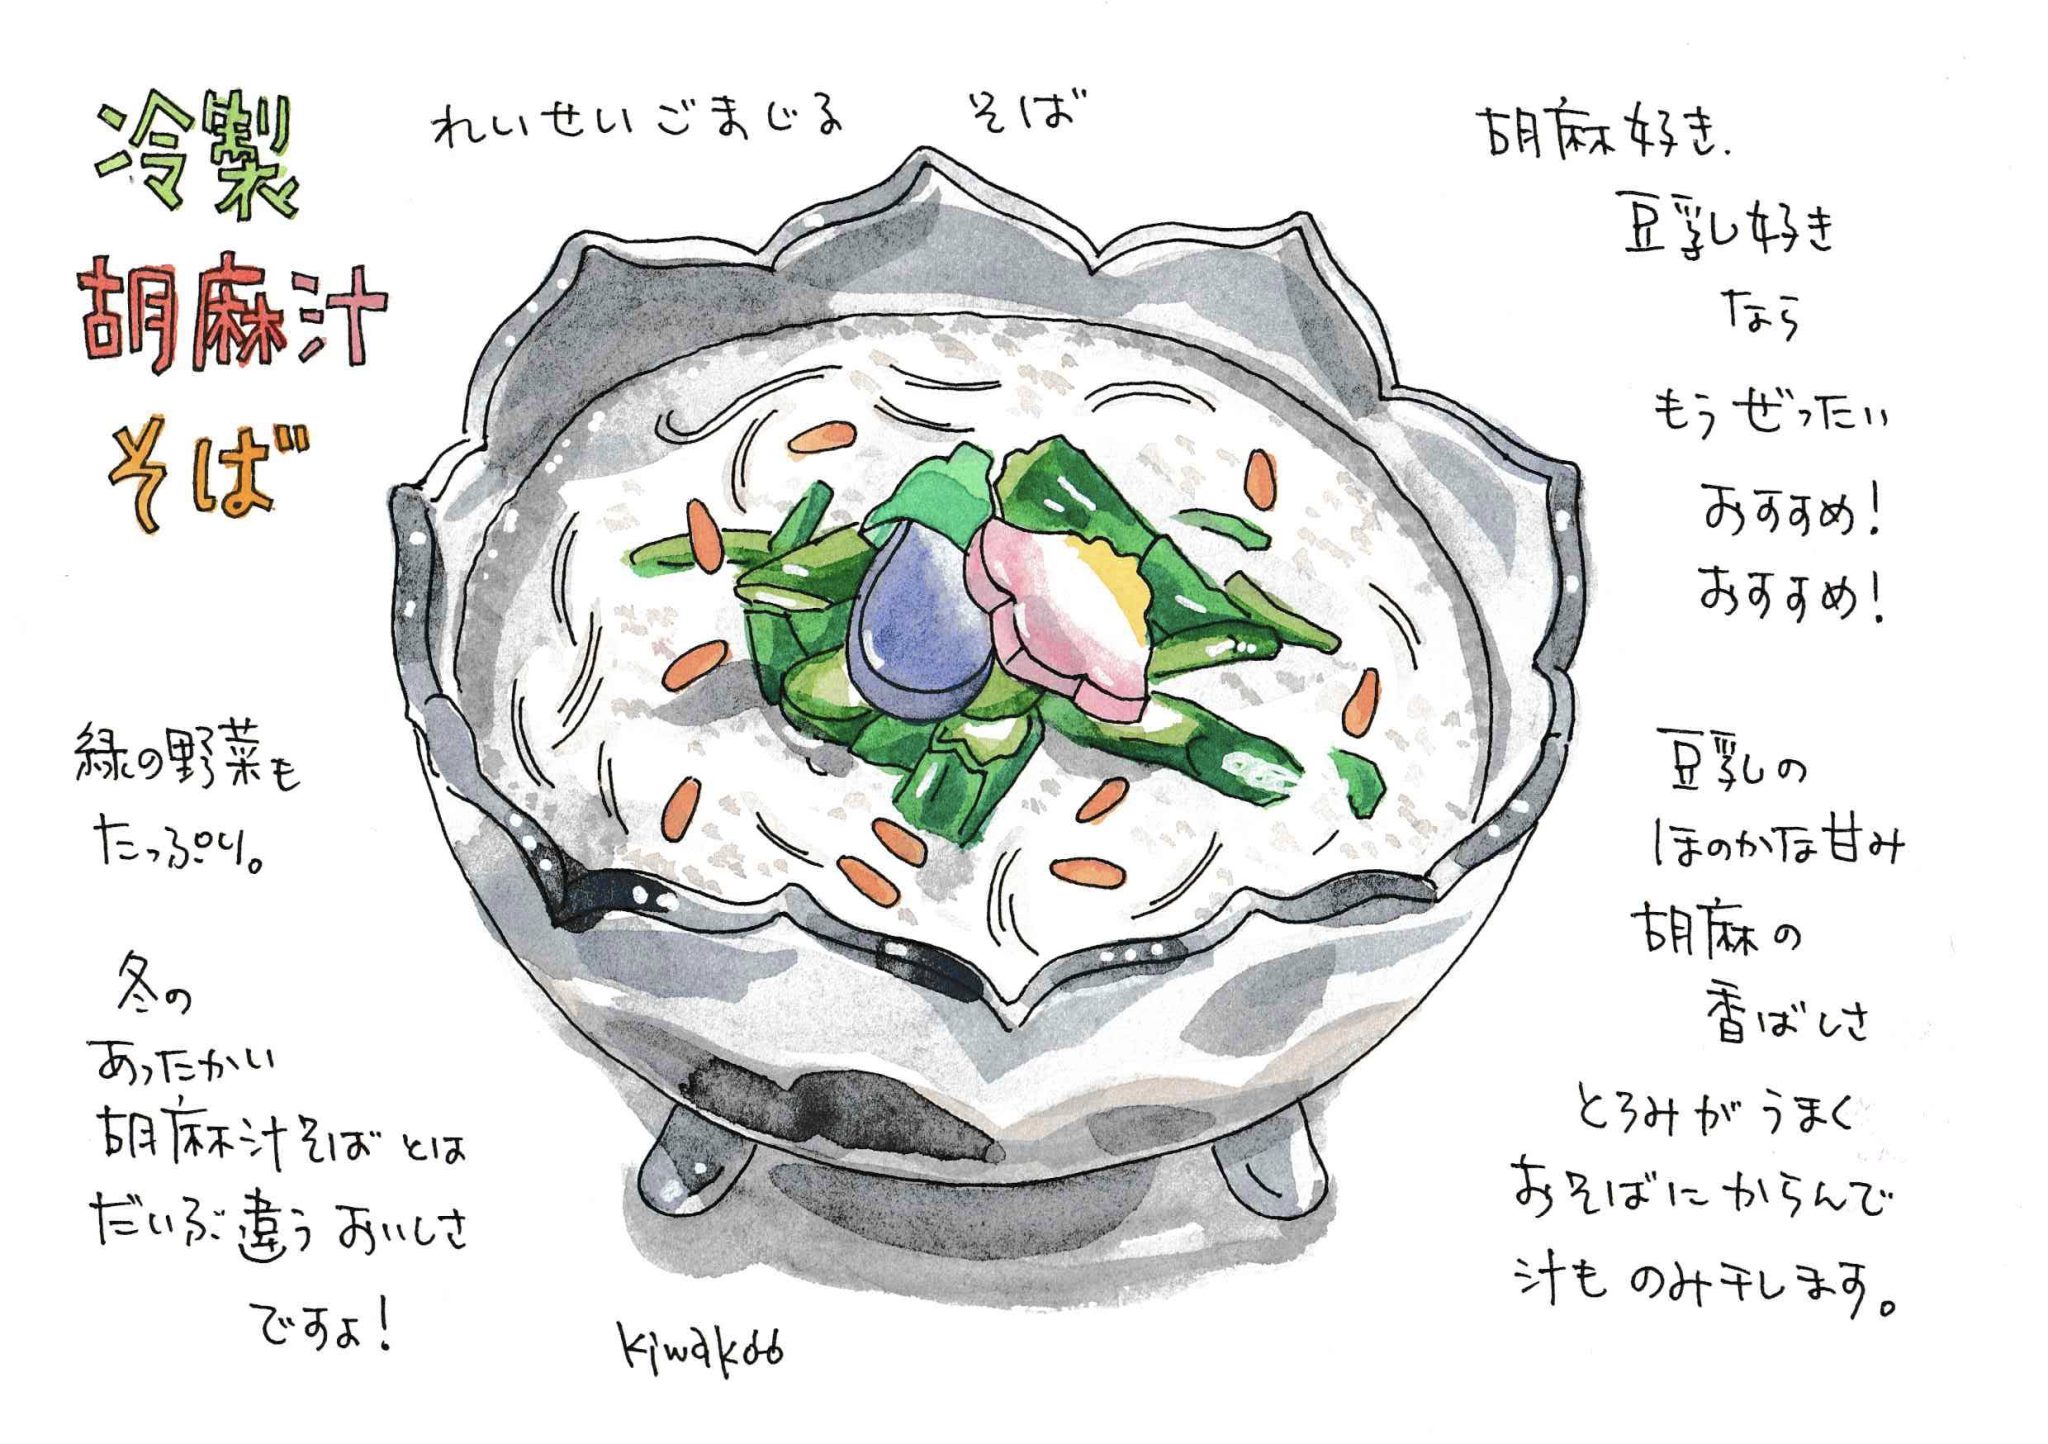 冷製
胡麻汁
そば
れいせいごまじる そば
胡麻好き、
豆乳好き
なら
もうぜったい
おすすめ!
おすすめ!
緑の野菜も
たっぷり。
冬の
あったかい
胡麻汁そばとは
だいぶ違うおいしさ
ですよ!
豆乳の
ほのかな甘み
胡麻の
香ばしさ
とろみがうまく
おそばにからんで
汁ものみ干します。
kiwakoo